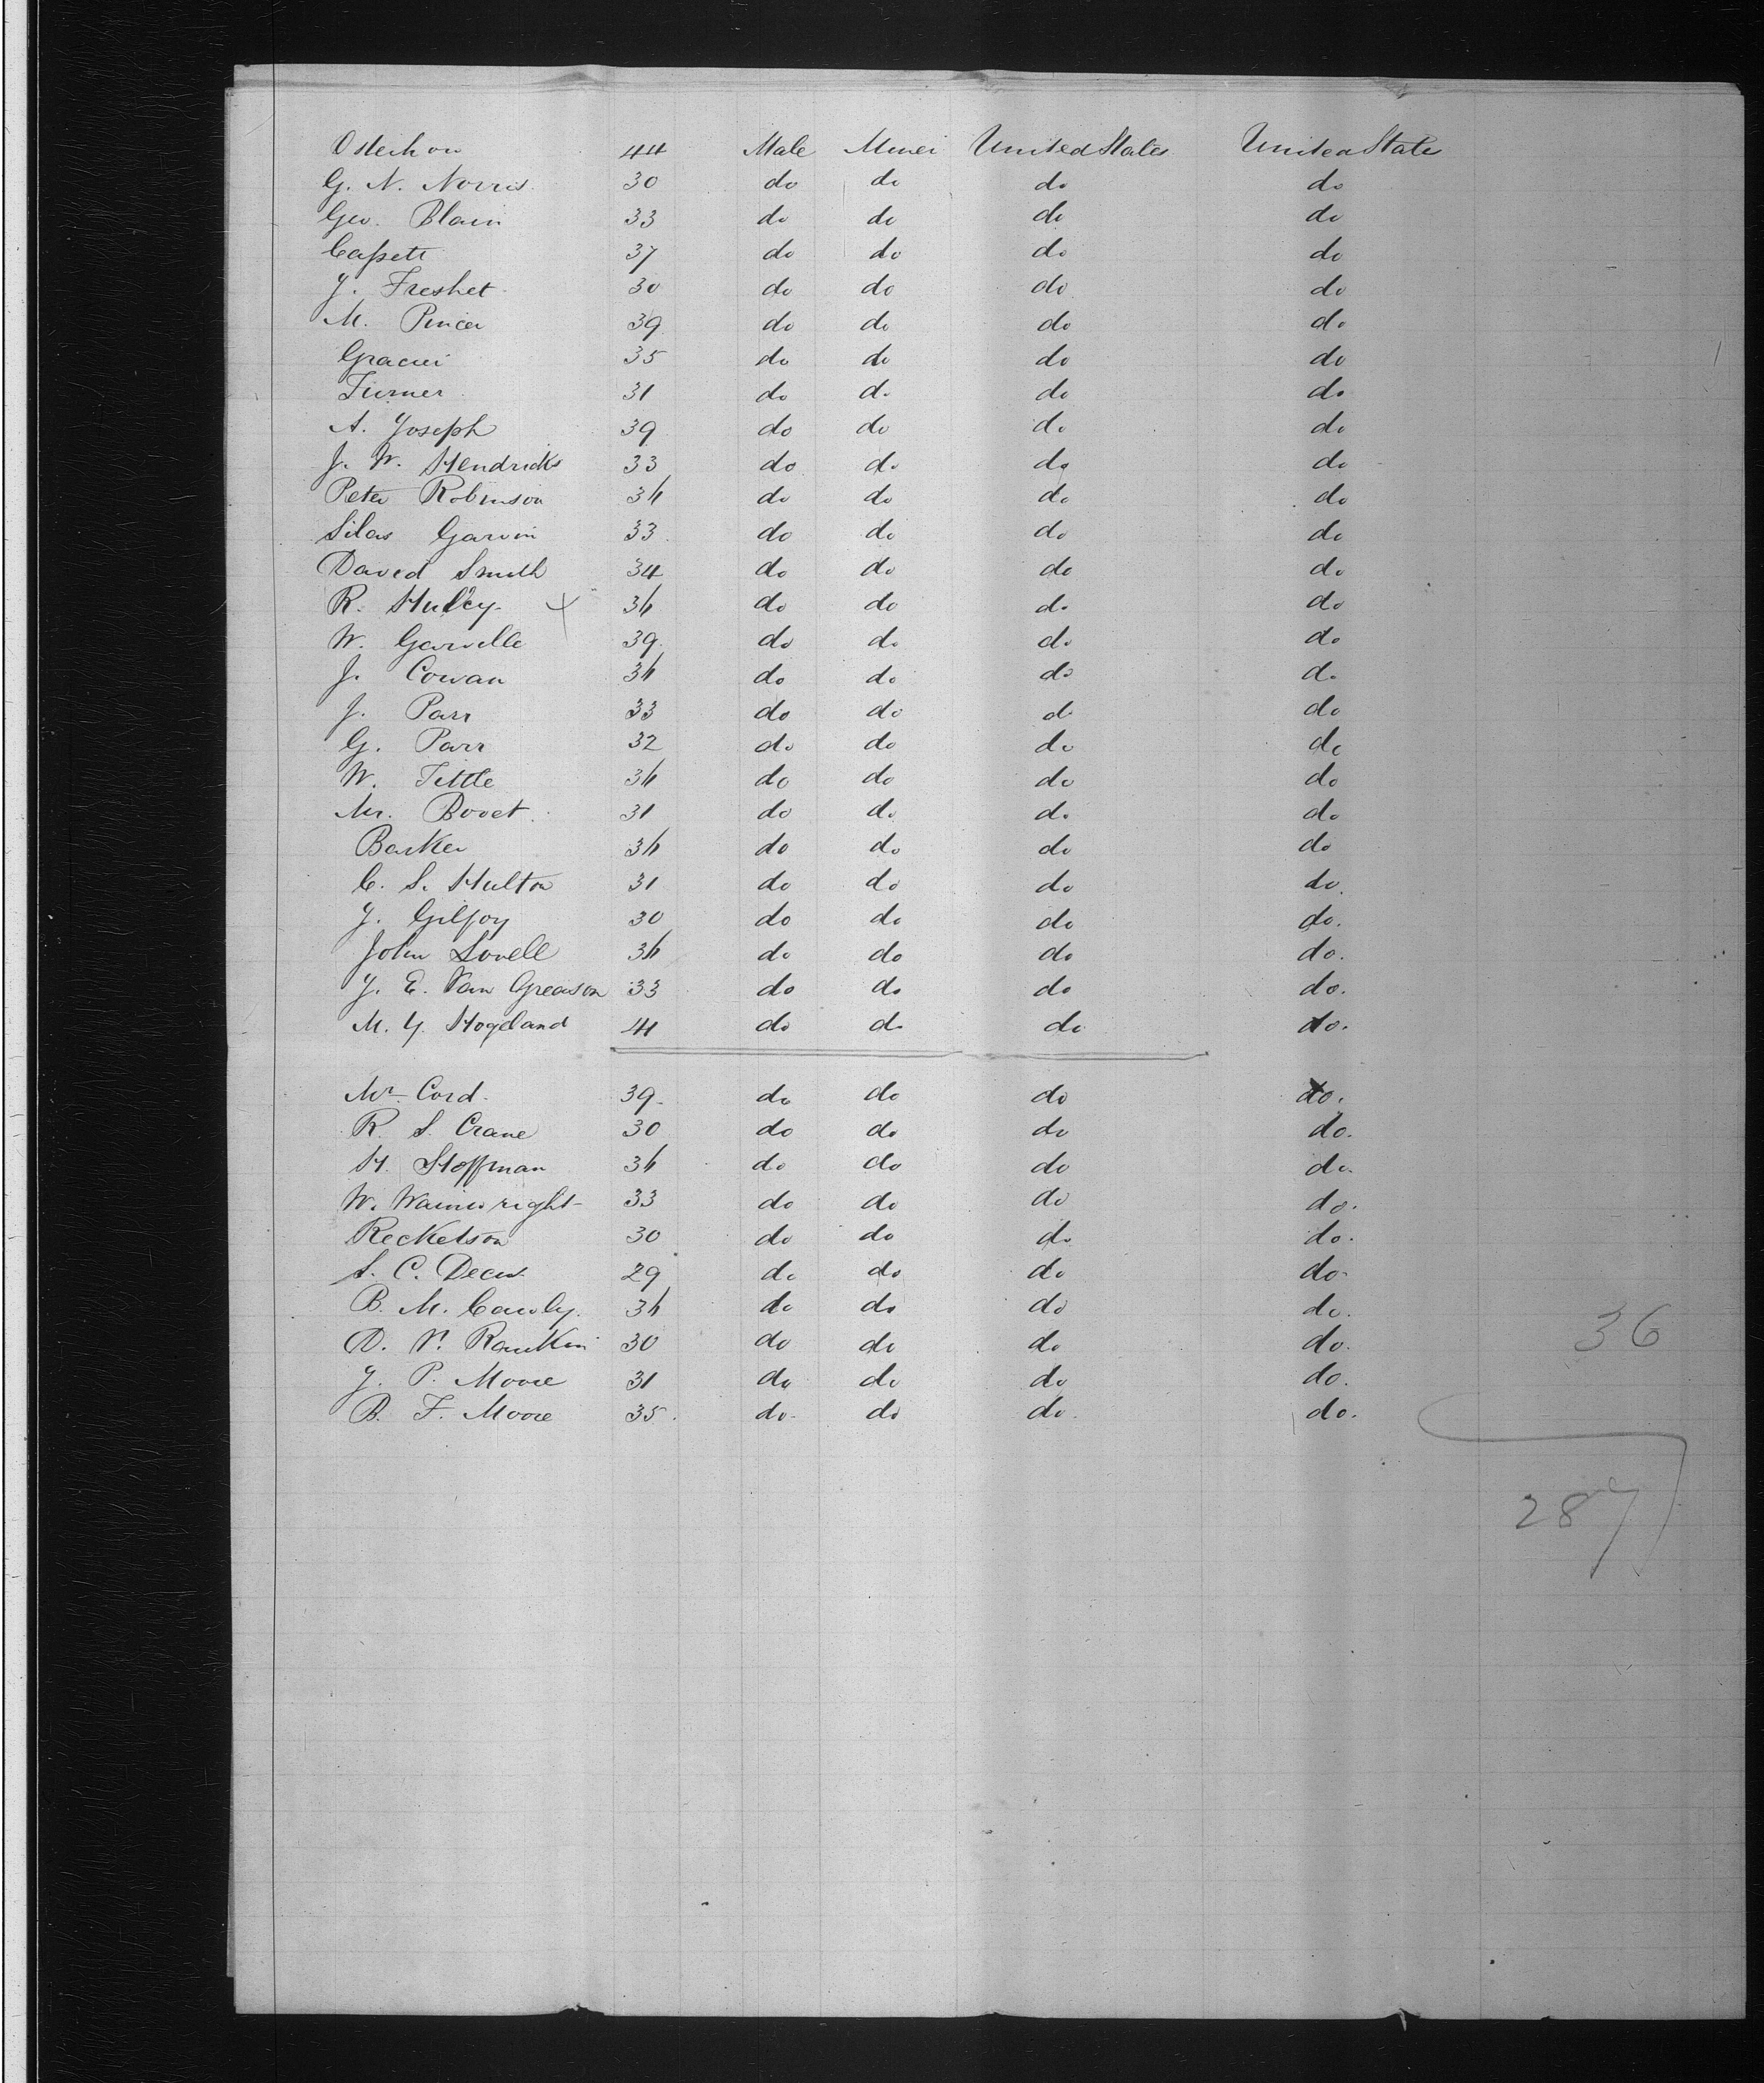 Osterhon 44 Male Miner United States United State
G. N. Norris. 30 do do do do
Geo. Blain 33 do do do do
Cassett 37 do do do do
J. Freshet 30 do do do do
M. Pincer 39 do do do do
Gracier 35 do do do do
Turner 31 do do do do
A. Joseph 39 do do do do
J. W. Hendricks 33 do do do do
Peter Robinson 36 do do do do
Silas Garvin 33 do do do do
David Smith 34 do do do do
R. Hulley 36 do do do do
W. Garvelle 39 do do do do
J. Cowan 36 do do do do
J. Parr 33 do do do do
G. Parr 32 do do do do
W. Tittle 36 do do do do
Mr. Bovet 31 do do do do
Barker 36 do do do do
C. S. Hulton 31 do do do do.
J. Gilfoy 30 do do do do.
John Lovell 36 do do do do.
J. E. Van Greason 33 do do do do.
M. Y. Hogeland 41 do do do do.
Mr. Cord. 39 do do do do.
R. S. Crane 30 do do do do.
H. Hoffman 36 do do do do.
W. Wainwright 33 do do do do.
Recketson 30 do do do do.
S. C. 29 do do do do.
B. M. Cawly. 36 do do do do.
D. V. Rankin 30 do do do do.
J. P. Moore 31 do do do do.
B. F. Moore 35. do. do do. do.
36
287